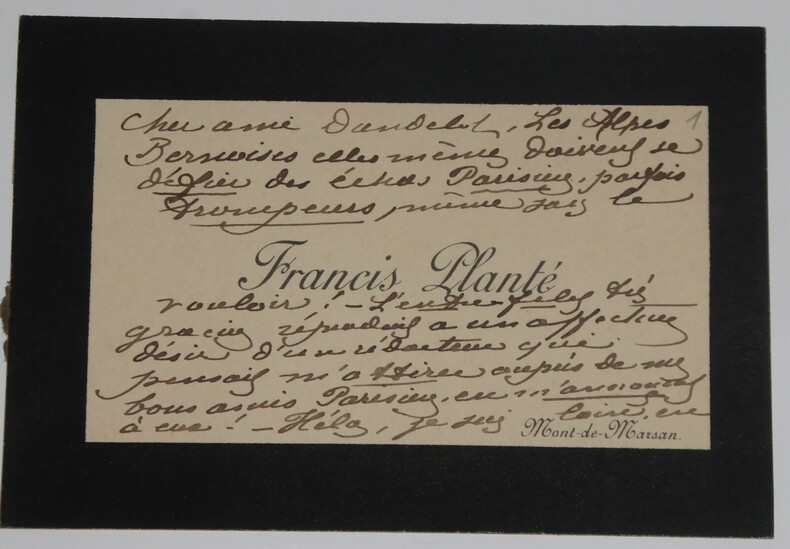 Cher ami Dandelot, Les Alpes 1
Bernoises elles mêmes doivent se
défier des échos Parisiens, parfois
trompeurs, même sans le
Francis Planté
vouloir ! - L'entre-filet très
gracieux répondait a un affectueux
désir d'un rédacteur qui
pensait m'attirer auprès de mes
bons amis Parisiens, en m'annonçant
à eux ! - Hélas, je suis loin, en
Mont-de-Marsan.